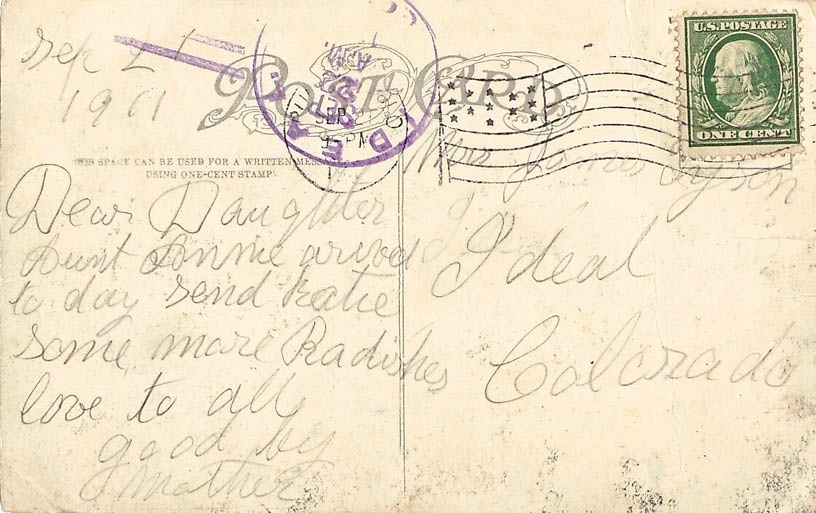 Sep 21
1901
POST CARD
U.S. POSTAGE
ONE CENT
IDEAL
SEP
22
AM
SEP
PM
THIS SPACE CAN BE USED FOR A WRITTEN MESSAGE
USING ONE-CENT STAMP.
Dear Daughter
Aunt Annie arived
to day send Katie
some more Radishes
love to all
good by
Mother
Mrs James Tyson
Ideal
Colorado